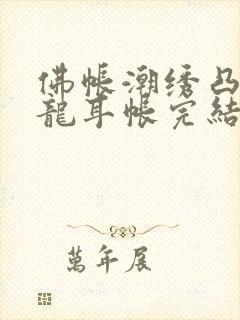 佛帳潮绣凸
龍耳帳完結
萬年展